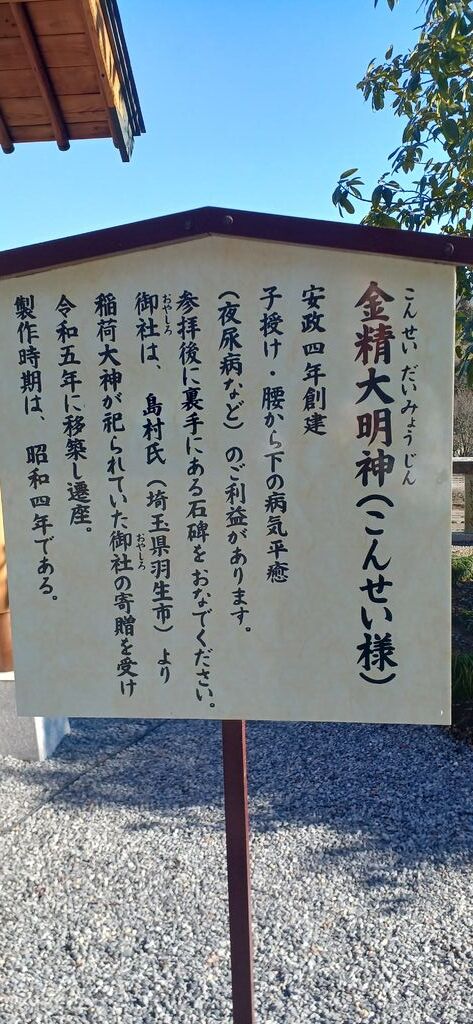 こんせい だいみょうじん
金精大明神(こんせい様)
安政四年創建
子授け・腰から下の病気平癒
(夜尿病など)のご利益があります。
参拝後に裏手にある石碑をおなでください。
おやしろ
御社は、島村氏(埼玉県羽生市)より
稲荷大神が祀られていた御社の寄贈を受け
おやしろ
令和五年に移築し遷座。
製作時期は、昭和四年である。